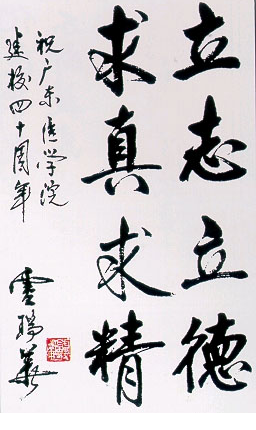 立志立德
求真求精
祝广东医学院
建校四十周年
盧瑞華